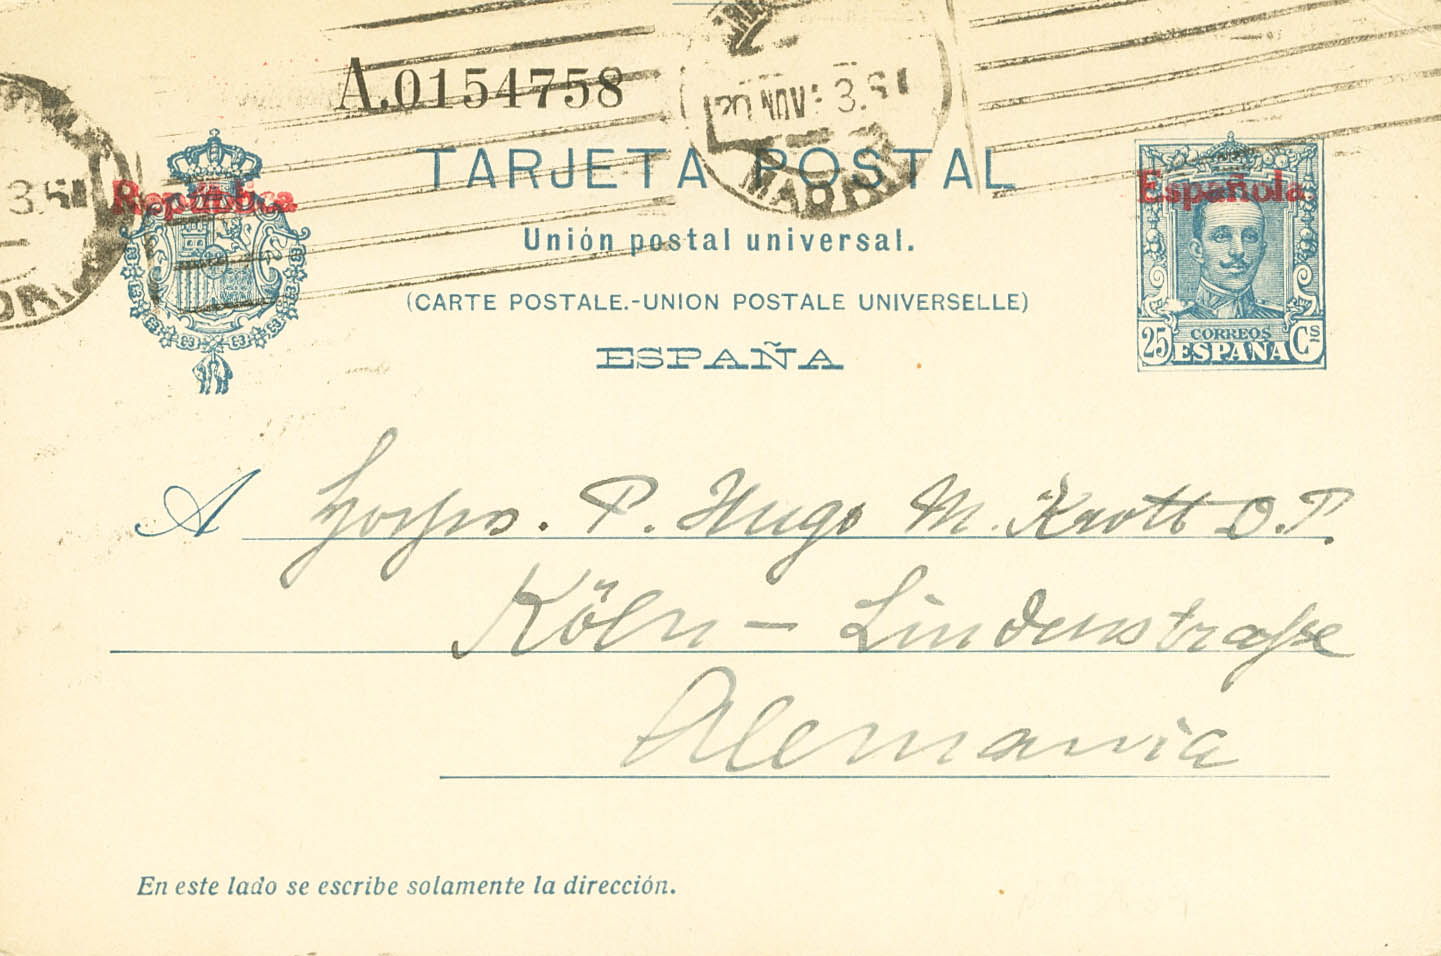 A.0154758
20 NOV 3.5
MADRID
TARJETA POSTAL
República
Española
Unión postal universal.
(CARTE POSTALE.-UNION POSTALE UNIVERSELLE)
ESPAÑA
25 CORREOS Cs
ESPAÑA
A P. Hugo M. Krott O.P.
Köln - Lindenstraße
Alemania
En este lado se escribe solamente la dirección.